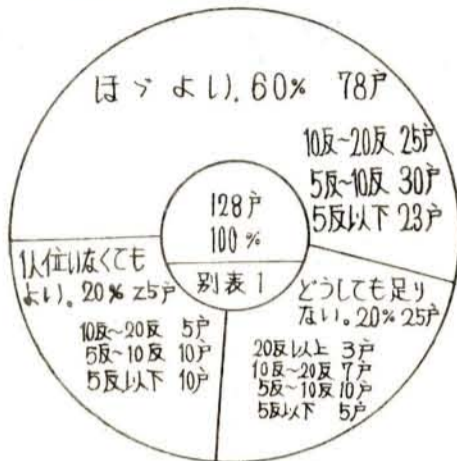 ほゞよい。60% 78戸
10反~20反 25戸
5反~10反 30戸
5反以下 23戸
128戸
100%
別表1
1人位いなくても
よい。20% 25戸
10反~20反 5戸
5反~10反 10戸
5反以下 10戸
どうしても足り
ない。20% 25戸
20反以上 3戸
10反~20反 7戸
5反~10反 10戸
5反以下 5戸